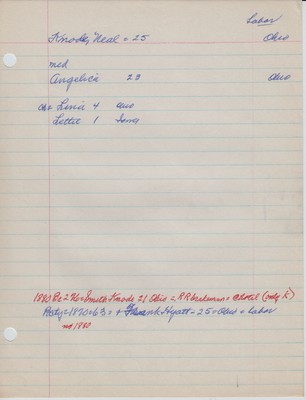 Labor
Knode, Neal = 25 Ohio
md
Angelica 22 Ohio
ch = Lina 4 Ohio
Lettie 1 Iowa
1880 Pg 296 = Smith Knode 21 Ohio = RR brakeman = @hotel (only K)
Pg 1870 = 63 = + Frank Hyatt - 25 = Ohio = Labor
not 1880